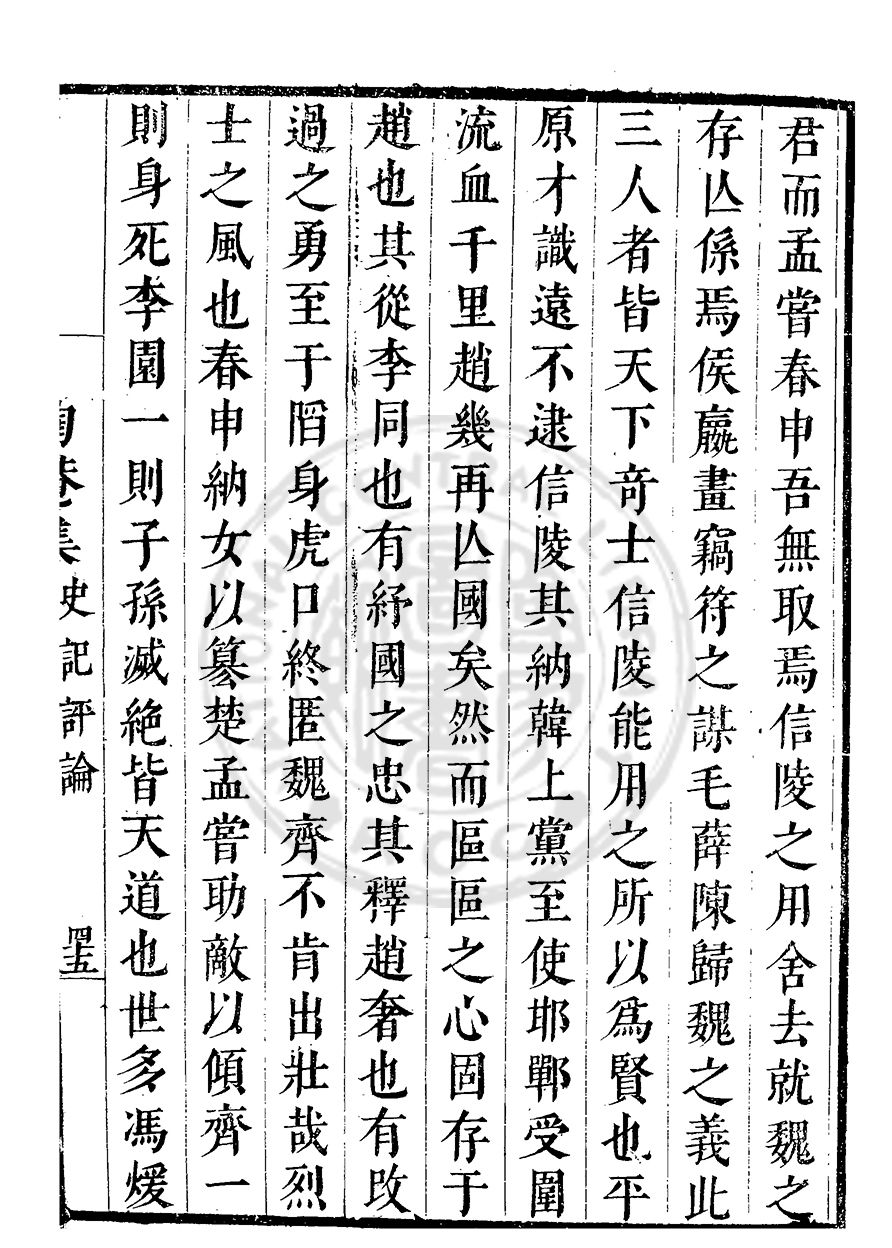 君而孟嘗春申吾無取焉信陵之用舍去就魏之
存亾係焉侯嬴畫竊符之謀毛薛陳歸魏之義此
三人者皆天下奇士信陵能用之所以為賢也平
原才識遠不逮信陵其納韓上黨至使邯鄲受圍
流血千里趙幾再亾國矣然而區區之心固存于
趙也其從李同也有紓國之忠其釋趙奢也有改
過之勇至于陷身虎口終匿魏齊不肯出壯哉烈
士之風也春申納女以篡楚孟嘗助敵以傾齊一
則身死李園一則子孫滅絕皆天道也世多馮煖
陶菴集 史記評論 四五